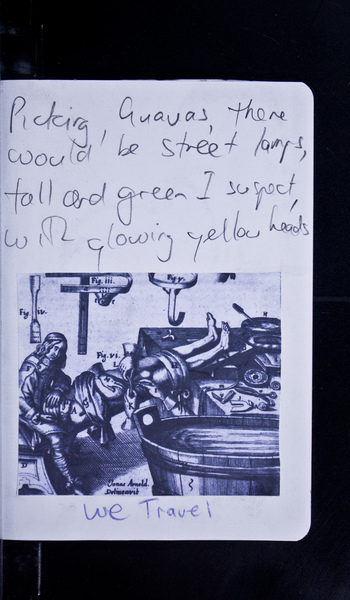 Picking, Guavas, there
would be street lamps,
tall and green I suspect,
with glowing yellow heads
Fig. iii.
Fig. v.
Fig. iv.
Fig. vi.
L
H
D
Jonas Arnold.
Delineavit
We Travel